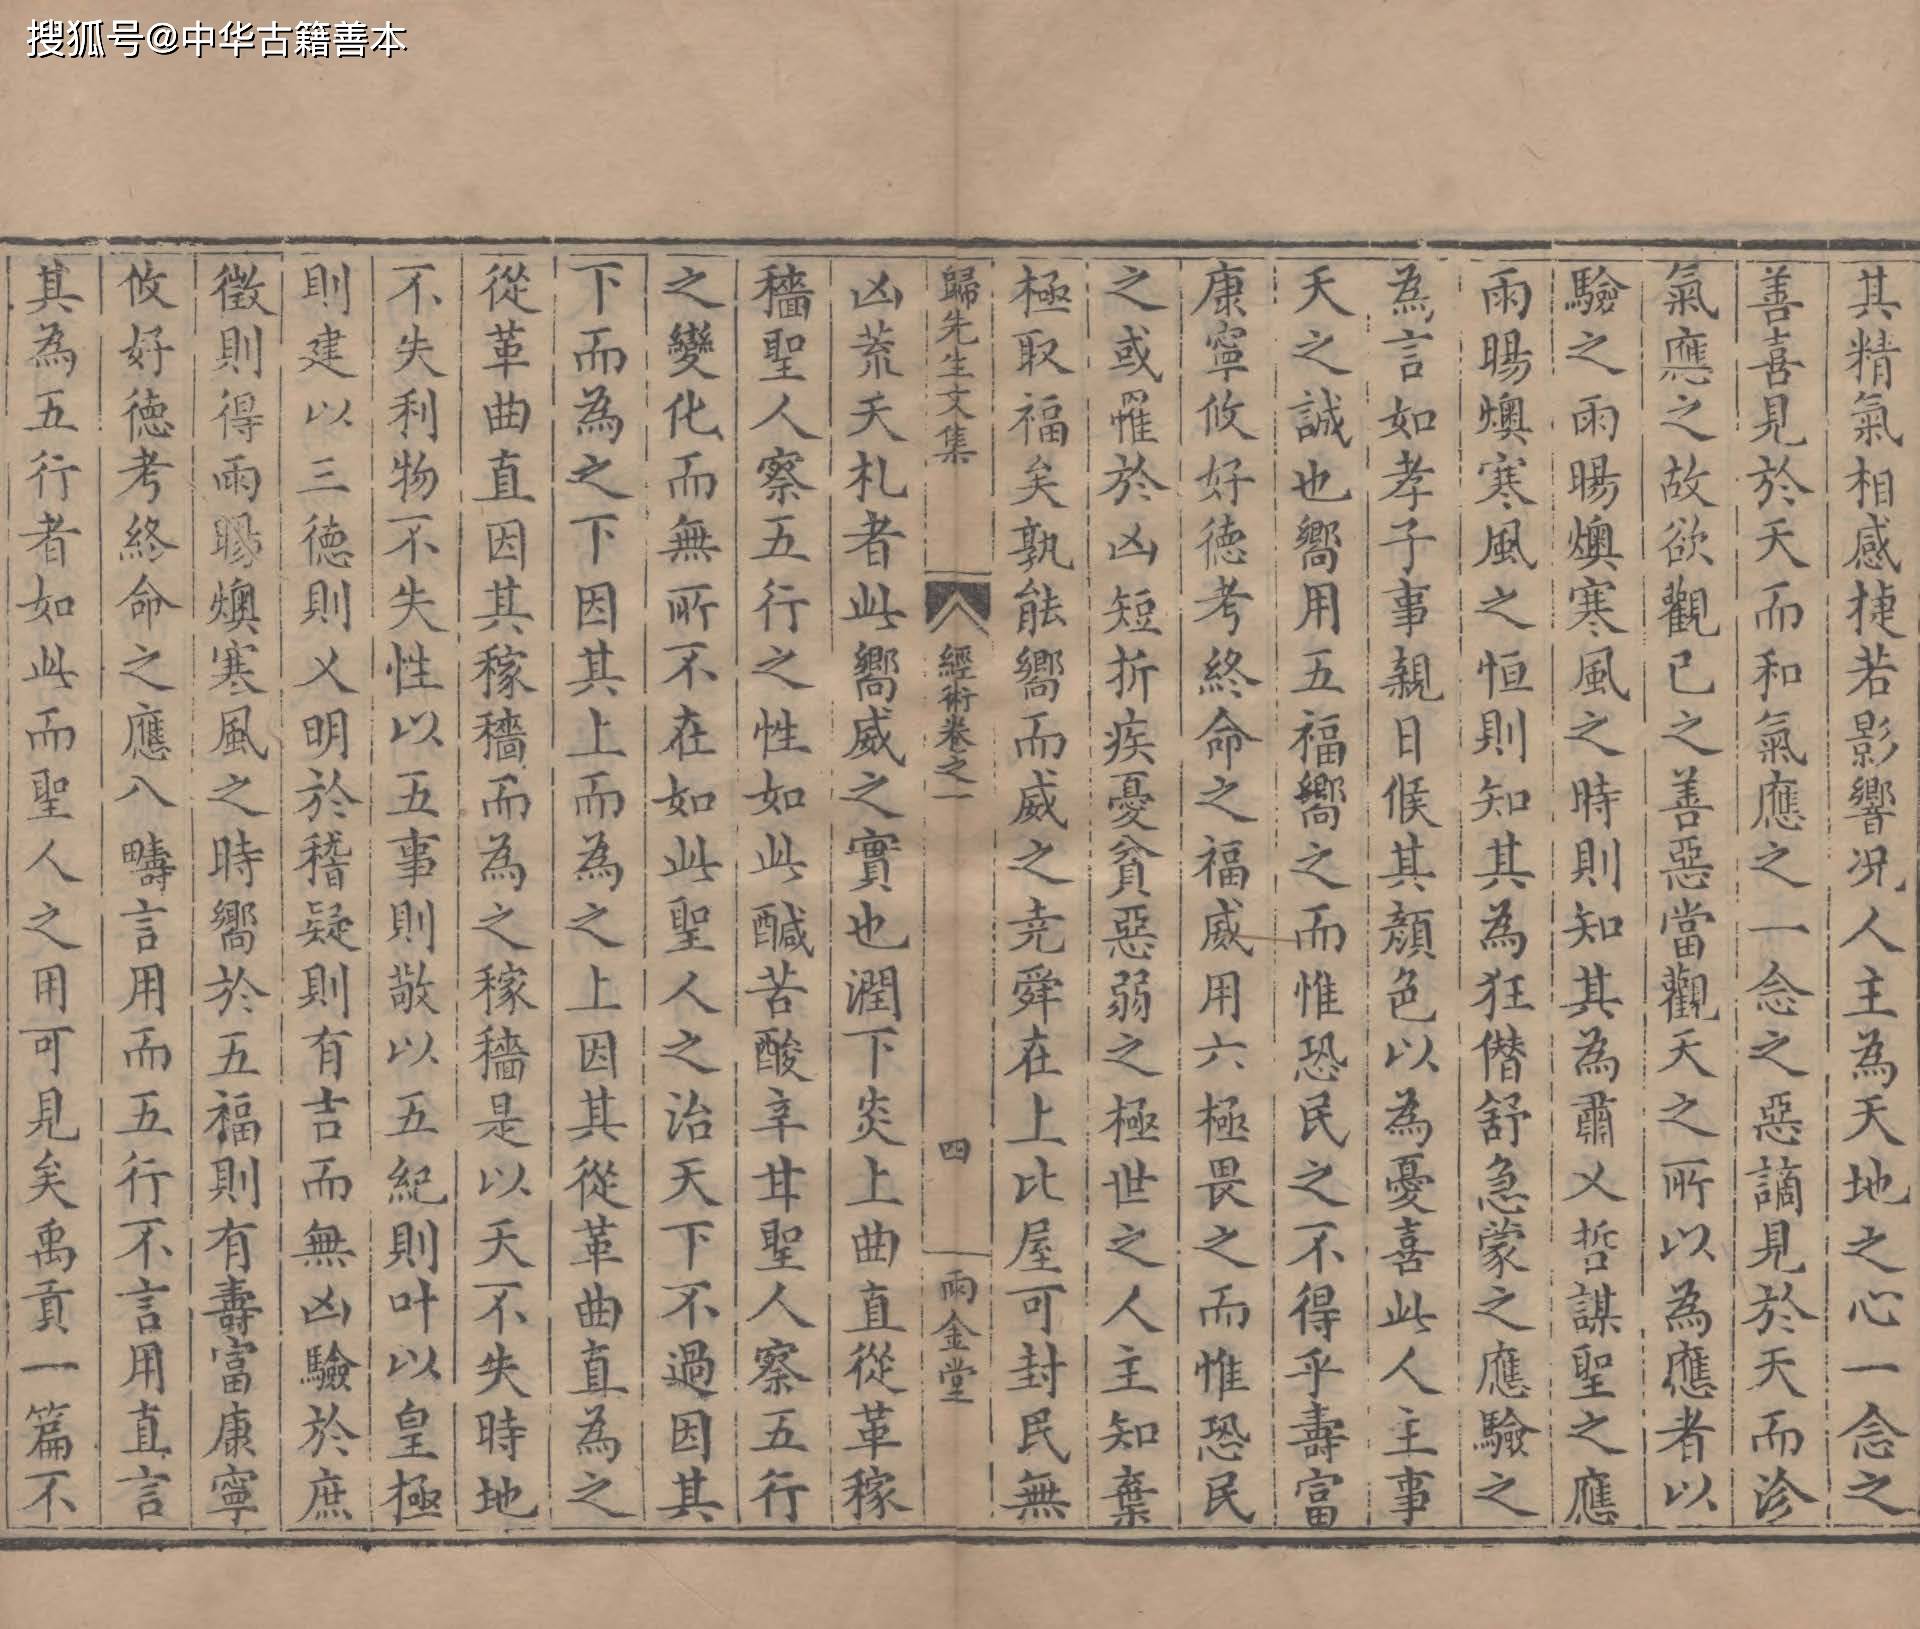 搜狐号@中华古籍善本
其精氣相感捷若影響况人主為天地之心一念之
善喜見於天而和氣應之一念之惡謫見於天而沴
氣應之故欲觀已之善惡當觀天之所以為應者以
驗之雨暘燠寒風之時則知其為肅乂哲謀聖之應
雨暘燠寒風之恒則知其為狂僭舒急蒙之應驗之
為言如孝子事親日候其顔色以為憂喜此人主事
天之誠也嚮用五福嚮之而惟恐民之不得乎壽富
康寧攸好德考終命之福威用六極畏之而惟恐民
之或罹於凶短折疾憂貧惡弱之極世之人主知棄
極取福矣孰能嚮而威之尭舜在上比屋可封民無
歸先生文集
經術卷之一
四
雨金堂
凶荒夭札者此嚮威之實也潤下炎上曲直從革稼
穡聖人察五行之性如此醎苦酸辛甘聖人察五行
之變化而無所不在如此聖人之治天下不過因其
下而為之下因其上而為之上因其從革曲直為之
從革曲直因其稼穡而為之稼穡是以天不失時地
不失利物不失性以五事則敬以五紀則叶以皇極
則建以三德則乂明於稽疑則有吉而無凶驗於庶
徵則得雨暘燠寒風之時嚮於五福則有壽富康寧
攸好德考終命之應八疇言用而五行不言用直言
其為五行者如此而聖人之用可見矣禹貢一篇不